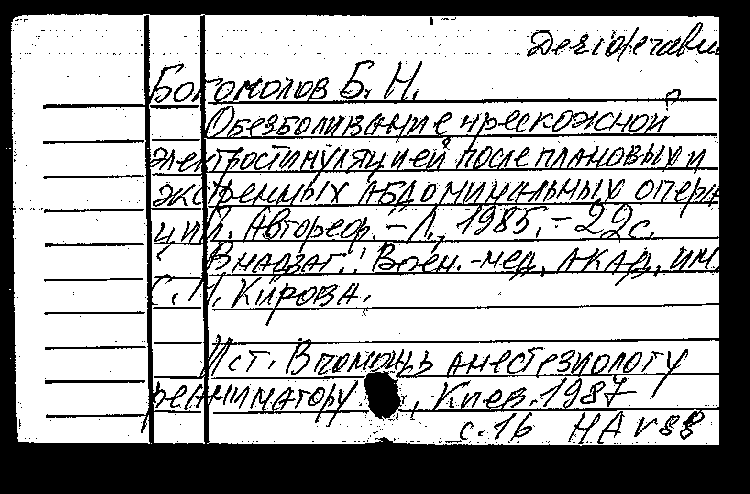 Deziderabu
Богомолов Б. Н.
Обезболивание чрескожной
электростимуляцией после плановых и
экстренных абдоминальных опера
ций. Автореф. – Л., 1985. – 22 с.
В надзаг.: Воен.-мед. акад. им.
С. М. Кирова.
Ист. В помощь анестезиологу
реаниматору , Киев. 1987
с. 16 НАv 88